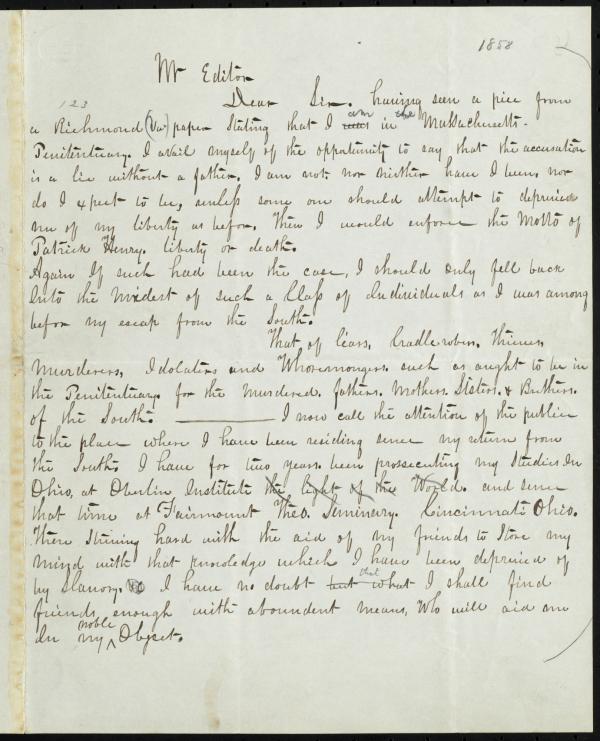 1858
Mr Editor
123
Dear Sir. having seen a piec from
a Richmond (Va) paper stating that I am in the Massachusetts-
Penitentuary. I avail myself of the oppotunity to say that the accusation
is a lie without a father, I am not, nor niether have I been, nor
do I expect to be, unless some one should attempt to deprived
me off my liberty as befor. Then I would enforce the Motto of
Patrick Henry. liberty or death.
Again If such had been the case, I should only fell back
Into the Midest of such a Class of Individuals as I was among
befor my escap from the South.
That of liars, Cradle robers, Thieves,
Murderers, Idolaters and Whoremongers. such as ought to be in
the Penitentuary. for the Murdered. fathers. Mothers. Sisters. & Bothers.
of the South. I now call the attention of the publice
to the place where I have been residing sence my return from
the South. I have for two years been prossecuting my Studies In
Ohio, at Oberlin Institute the light of the World. and sence
that time at Fairmount Theo. Seminerry. Cincinnati Ohio.
There striving hard with the aid of my friends to Store my
mind with that knowledge which I have been deprived of
by Slavory. I have no doubt but what that I shall find
friends enough with abundent means, Who will aid me
In my noble Object.